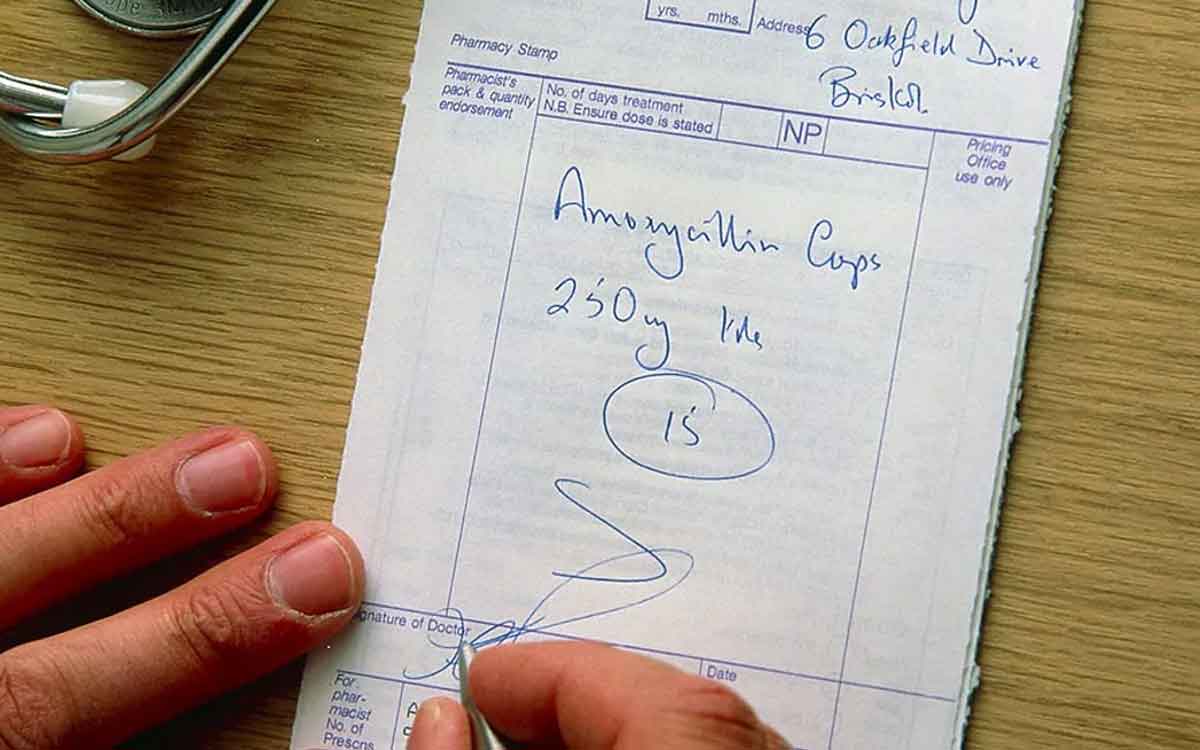 yrs. mths.
Address 6 Oakfield Drive
Bristol
Pharmacy Stamp
Pharmacist's
pack & quantity
endorsement
No. of days treatment
N.B. Ensure dose is stated
NP
Pricing
Office
use only
Amoxycillin Caps
250mg
15
Signature of Doctor
Date
For
phar-
macist
No. of
Prescns